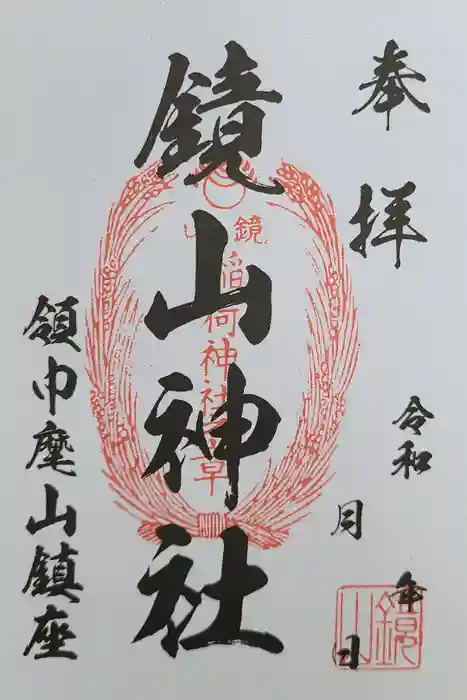 奉拝
令和 年
月 日
鏡山神社
鏡山
稲荷神社之章
領巾麾山鎮座
鏡山